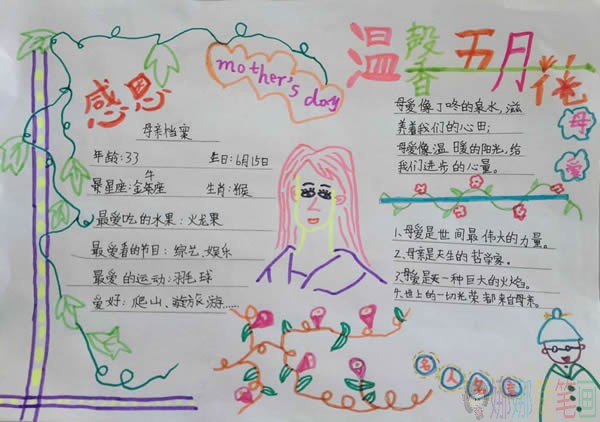 感恩
mother's day
温馨五月花
母亲档案
年龄:33 生日:6月15日
星座:金牛座 生肖:猴
最爱吃的水果:火龙果
最爱看的节目:综艺、娱乐
最爱的运动:羽毛球
爱好:爬山、旅游……
母爱像丁咚的泉水,滋
养着我们的心田;
母爱像温暖的阳光,给
我们进步的心量。
母爱
1.母爱是世间最伟大的力量。
2.母亲是天生的哲学家。
3.母爱是一种巨大的火焰。
4.世上的一切光荣都来自母亲。
名人名言
娜娜 笔画